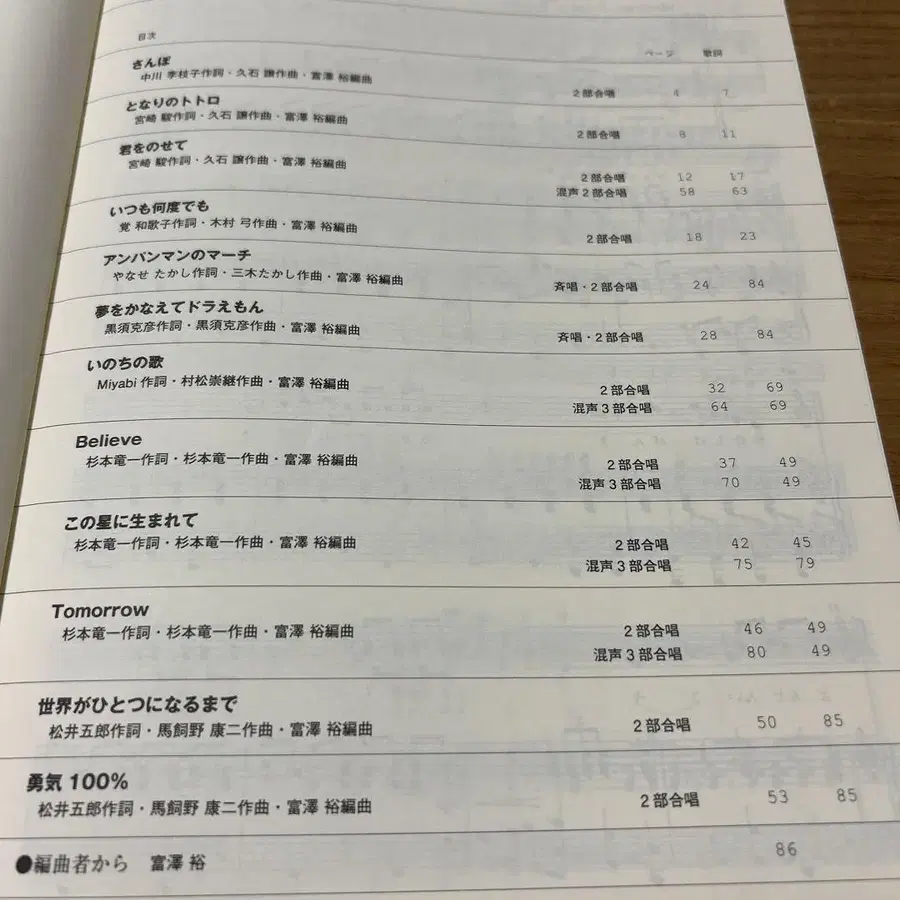 目次 ページ 歌詞
さんぽ
中川 李枝子作詞・久石 譲作曲・富澤 裕編曲
2部合唱 4 7
となりのトトロ
宮崎 駿作詞・久石 譲作曲・富澤 裕編曲
2部合唱 8 11
君をのせて
宮崎 駿作詞・久石 譲作曲・富澤 裕編曲
2部合唱 12 17
混声2部合唱 58 63
いつも何度でも
覚 和歌子作詞・木村 弓作曲・富澤 裕編曲
2部合唱 18 23
アンパンマンのマーチ
やなせ たかし作詞・三木たかし作曲・富澤 裕編曲
斉唱・2部合唱 24 84
夢をかなえてドラえもん
黒須克彦作詞・黒須克彦作曲・富澤 裕編曲
斉唱・2部合唱 28 84
いのちの歌
Miyabi 作詞・村松崇継作曲・富澤 裕編曲
2部合唱 32 69
混声3部合唱 64 69
Believe
杉本竜一作詞・杉本竜一作曲・富澤 裕編曲
2部合唱 37 49
混声3部合唱 70 49
この星に生まれて
杉本竜一作詞・杉本竜一作曲・富澤 裕編曲
2部合唱 42 45
混声3部合唱 75 79
Tomorrow
杉本竜一作詞・杉本竜一作曲・富澤 裕編曲
2部合唱 46 49
混声3部合唱 80 49
世界がひとつになるまで
松井五郎作詞・馬飼野 康二作曲・富澤 裕編曲
2部合唱 50 85
勇気 100%
松井五郎作詞・馬飼野 康二作曲・富澤 裕編曲
2部合唱 53 85
●編曲者から 富澤 裕 86